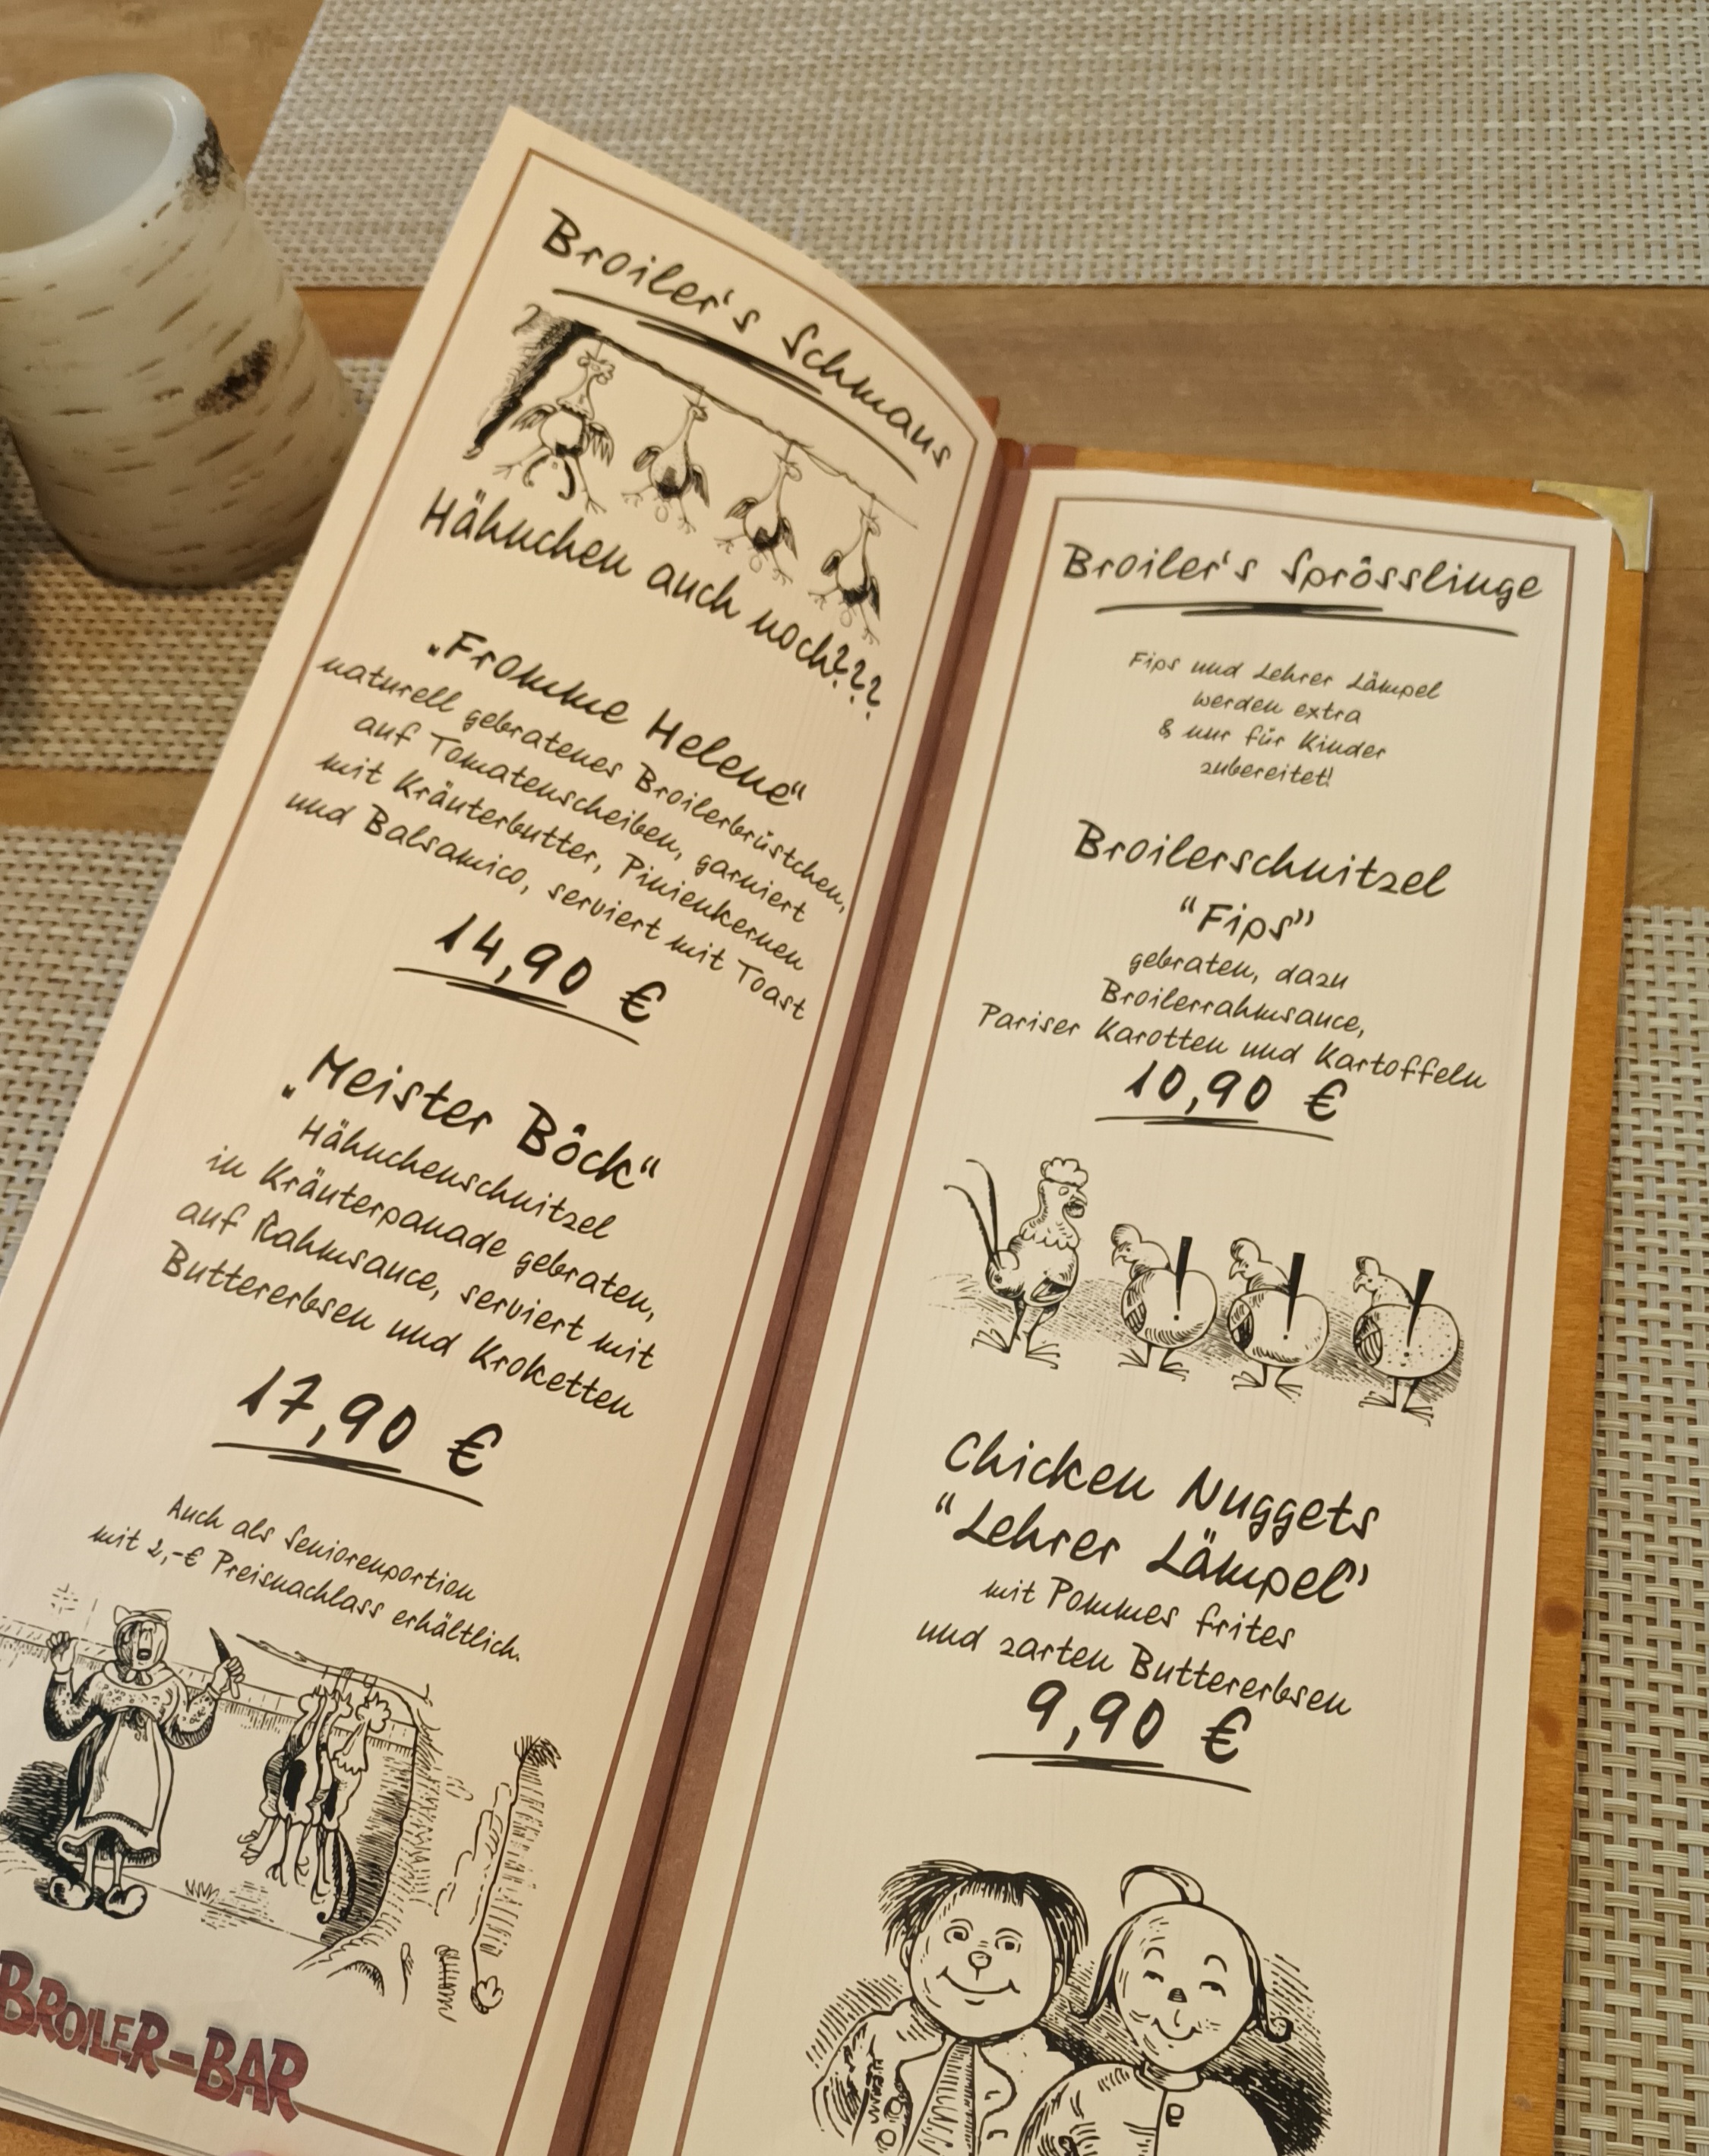 Broiler's Schmaus
Hähnchen auch noch???
„Fromme Helene“
naturell gebratenes Broilerbrüstchen,
auf Tomatenscheiben, garniert
mit Kräuterbutter, Pinienkernen
und Balsamico, serviert mit Toast
14,90 €
„Meister Böck“
Hähnchenschnitzel
in Kräuterpanade gebraten,
auf Rahmsauce, serviert mit
Buttererbsen und Kroketten
17,90 €
Auch als Seniorenportion
mit 2,-€ Preisnachlass erhältlich.
BROILER-BAR
Broiler's Sprösslinge
Fips und Lehrer Lämpel
werden extra
& nur für Kinder
zubereitet!
Broilerschnitzel
“Fips”
gebraten, dazu
Broilerrahmsauce,
Pariser Karotten und Kartoffeln
10,90 €
Chicken Nuggets
“Lehrer Lämpel”
mit Pommes frites
und zarten Buttererbsen
9,90 €